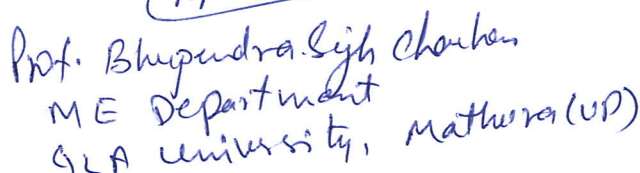 Prof. Bhupendra Singh Chauhan
ME Department
GLA University, Mathura (UP)